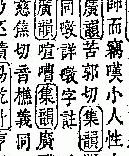 師而竊嘆小人性
廣韻苦郭切集韻
同噋詳噋字註
廣韻喧嘈集韻
慈焦切音樵義同